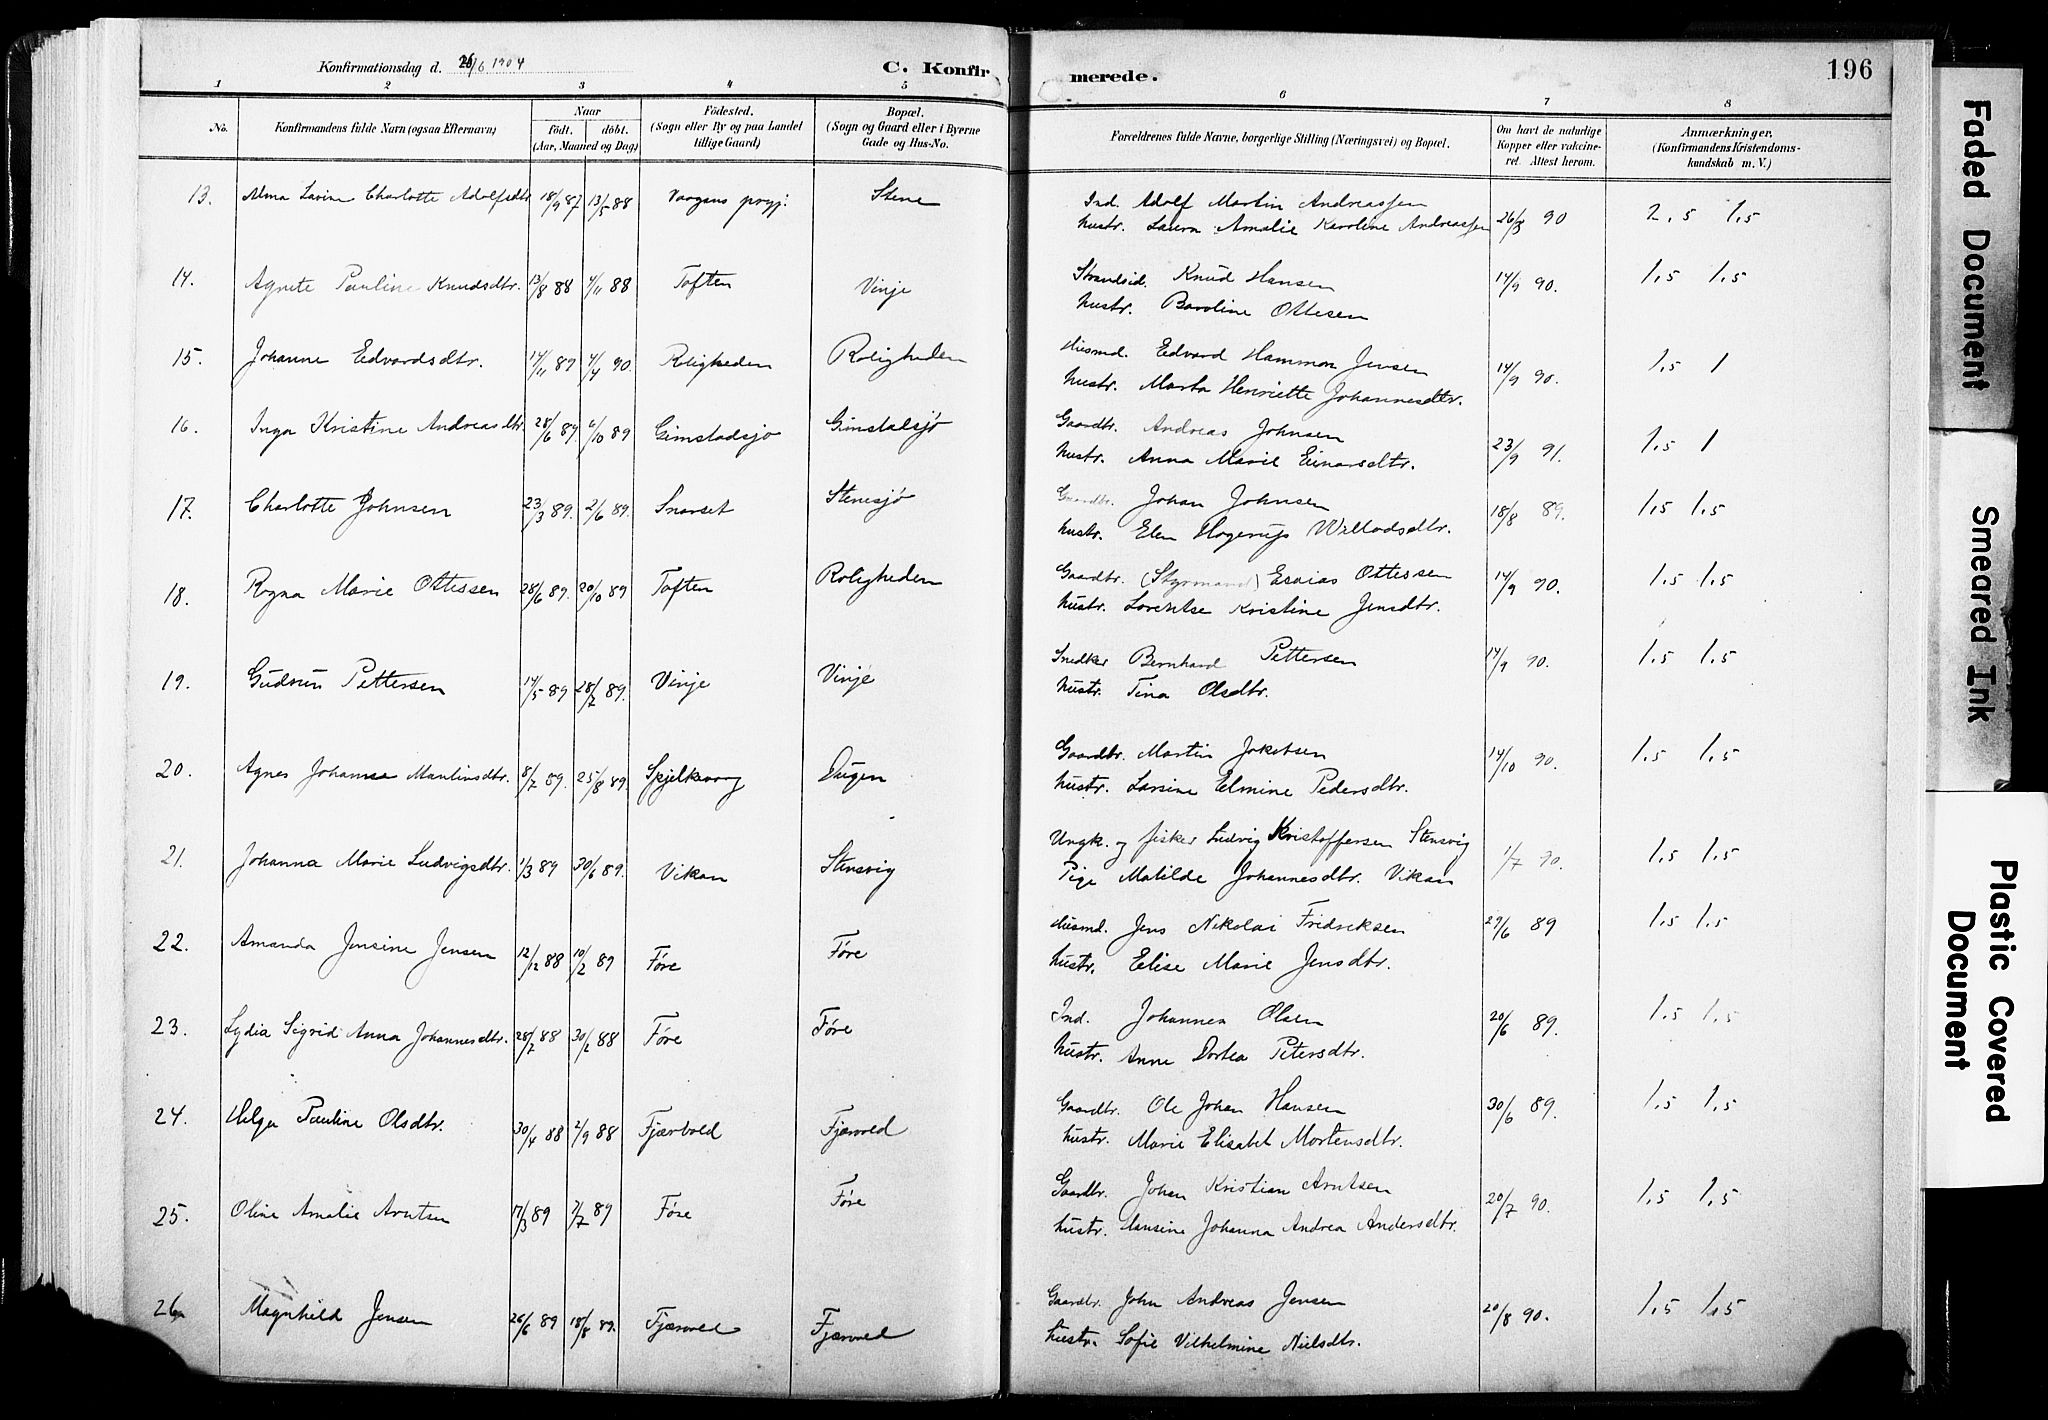 Konfirmationsdag d. 26/6 1904
C. Konfirmerede.
196
1 2 3 4 5 6 7 8
No.
Konfirmandens fulde Navn (ogsaa Efternavn)
Naar
födt. döbt.
(Aar, Maaned og Dag)
Födested.
(Sogn eller By og paa Landet
tillige Gaard)
Bopæl.
(Sogn og Gaard eller i Byerne
Gade og Hus-No.
Forældrenes fulde Navne, borgerlige Stilling (Næringsvei) og Bopæl.
Om havt de naturlige
Kopper eller vakcine-
ret. Attest herom.
Anmærkninger.
(Konfirmandens Kristendoms-
kundskab m. V.)
13. Alma Lovine Charlotte Adolfsdtr 18/9 87 13/5 88 Vaagans prgj: Stene Ind. Adolf Martin Andreassen 26/8 90 2,5 1,5
hustr. Laura Amalie Karoline Andreassen
14. Agnete Pauline Knudsdtr. 13/8 88 4/11 88 Toften Vinje Strandsid. Knud Hansen 14/9 90. 1,5 1,5
hustr. Baroline Ottesen
15. Johanne Edvardsdtr. 14/11 89 4/4 90. Roligheden Roligheden Husmd. Edvard Hammon Jensen 14/9 90. 1,5 1
hustr. Marta Henriette Johannesdtr.
16. Inga Kristine Andreasdtr. 28/6 89. 6/10 89 Gimstadsjø Gimstadsjø Gaardbr. Andreas Johnsen 23/9 91. 1,5 1
hustr. Anna Marie Einarsdtr.
17. Charlotte Johnsen 23/3 89. 2/6 89. Snarset Stenesjø Gaardbr. Johan Johnsen 18/8 89. 1,5 1,5
hustr. Elen Hagerup Willadsdtr.
18. Ragna Marie Ottessen 28/6 89. 20/10 89 Toften Roligheden Gaardbr. (Styrmand) Esaias Ottessen 14/9 90. 1,5 1,5
hustr. Lorentse Kristine Jensdtr.
19. Gudrun Pettersen 14/5 89 28/7 89. Vinje Vinje Snedker Bernhard Pettersen 14/9 90. 1,5 1,5
hustr. Tina Olsdtr.
20. Agnes Johanna Martinsdtr. 8/7 89. 25/8 89. Spjelkvaag Dugen Gaardbr. Martin Jakobsen 14/10 90. 1,5 1,5
hustr. Larsine Elmine Pedersdtr.
21. Johanna Marie Ludvigsdtr. 1/3 89 30/6 89. Vikan Stensvig Ungk. og fisker Ludvig Kristoffersen Stensvig 1/7 90. 1,5 1,5
Pige Matilde Johannesdtr. Vikan
22. Amanda Jensine Jensen 12/12 88 10/2 89 Føre Føre Husmd. Jens Nikolai Fridriksen 29/6 89 1,5 1,5
hustr. Elise Marie Jensdtr.
23. Lydia Sigrid Anna Johannesdtr. 28/7 88 30/2 88 Føre Føre Ind. Johannes Olsen 20/6 89. 1,5 1,5
hustr. Anne Dortea Petersdtr.
24. Helga Pauline Olsdtr. 30/4 88 2/9 88 Fjærvold Fjærvold Gaardbr. Ole Johan Hansen 30/6 89. 1,5 1,5
hustr. Marie Elisabet Mortensdtr.
25. Oline Amalie Arntsen 17/3 89 7/7 89 Føre Føre Gaardbr. Johan Kristian Arntsen 20/7 90. 1,5 1,5
hustr. Hansine Johanna Andrea Andersdtr.
26 Magnhild Jensen 26/6 89 18/8 89. Fjærvold Fjærvold Gaardbr. John Andreas Jensen 20/8 90. 1,5 1,5
hustr. Sofie Vilhelmine Nielsdtr.
Faded Document
Smeared Ink
Plastic Covered
Document